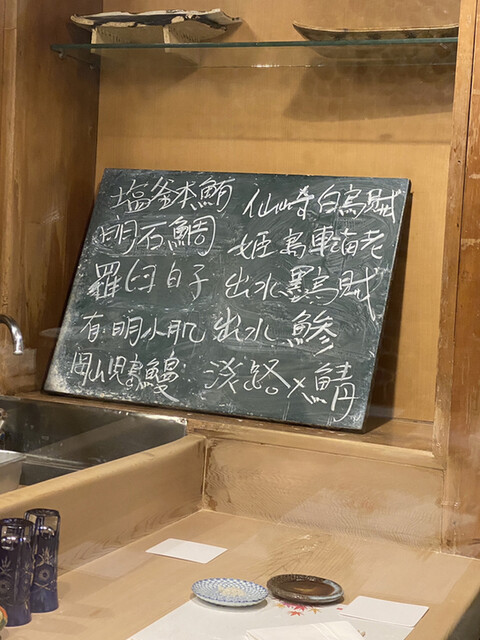 塩釜本鮪
明石鯛
羅臼白子
有明小肌
岡山児島鰻
仙崎白烏賊
姫島車海老
出水墨烏賊
出水鯵
淡路〆鯖